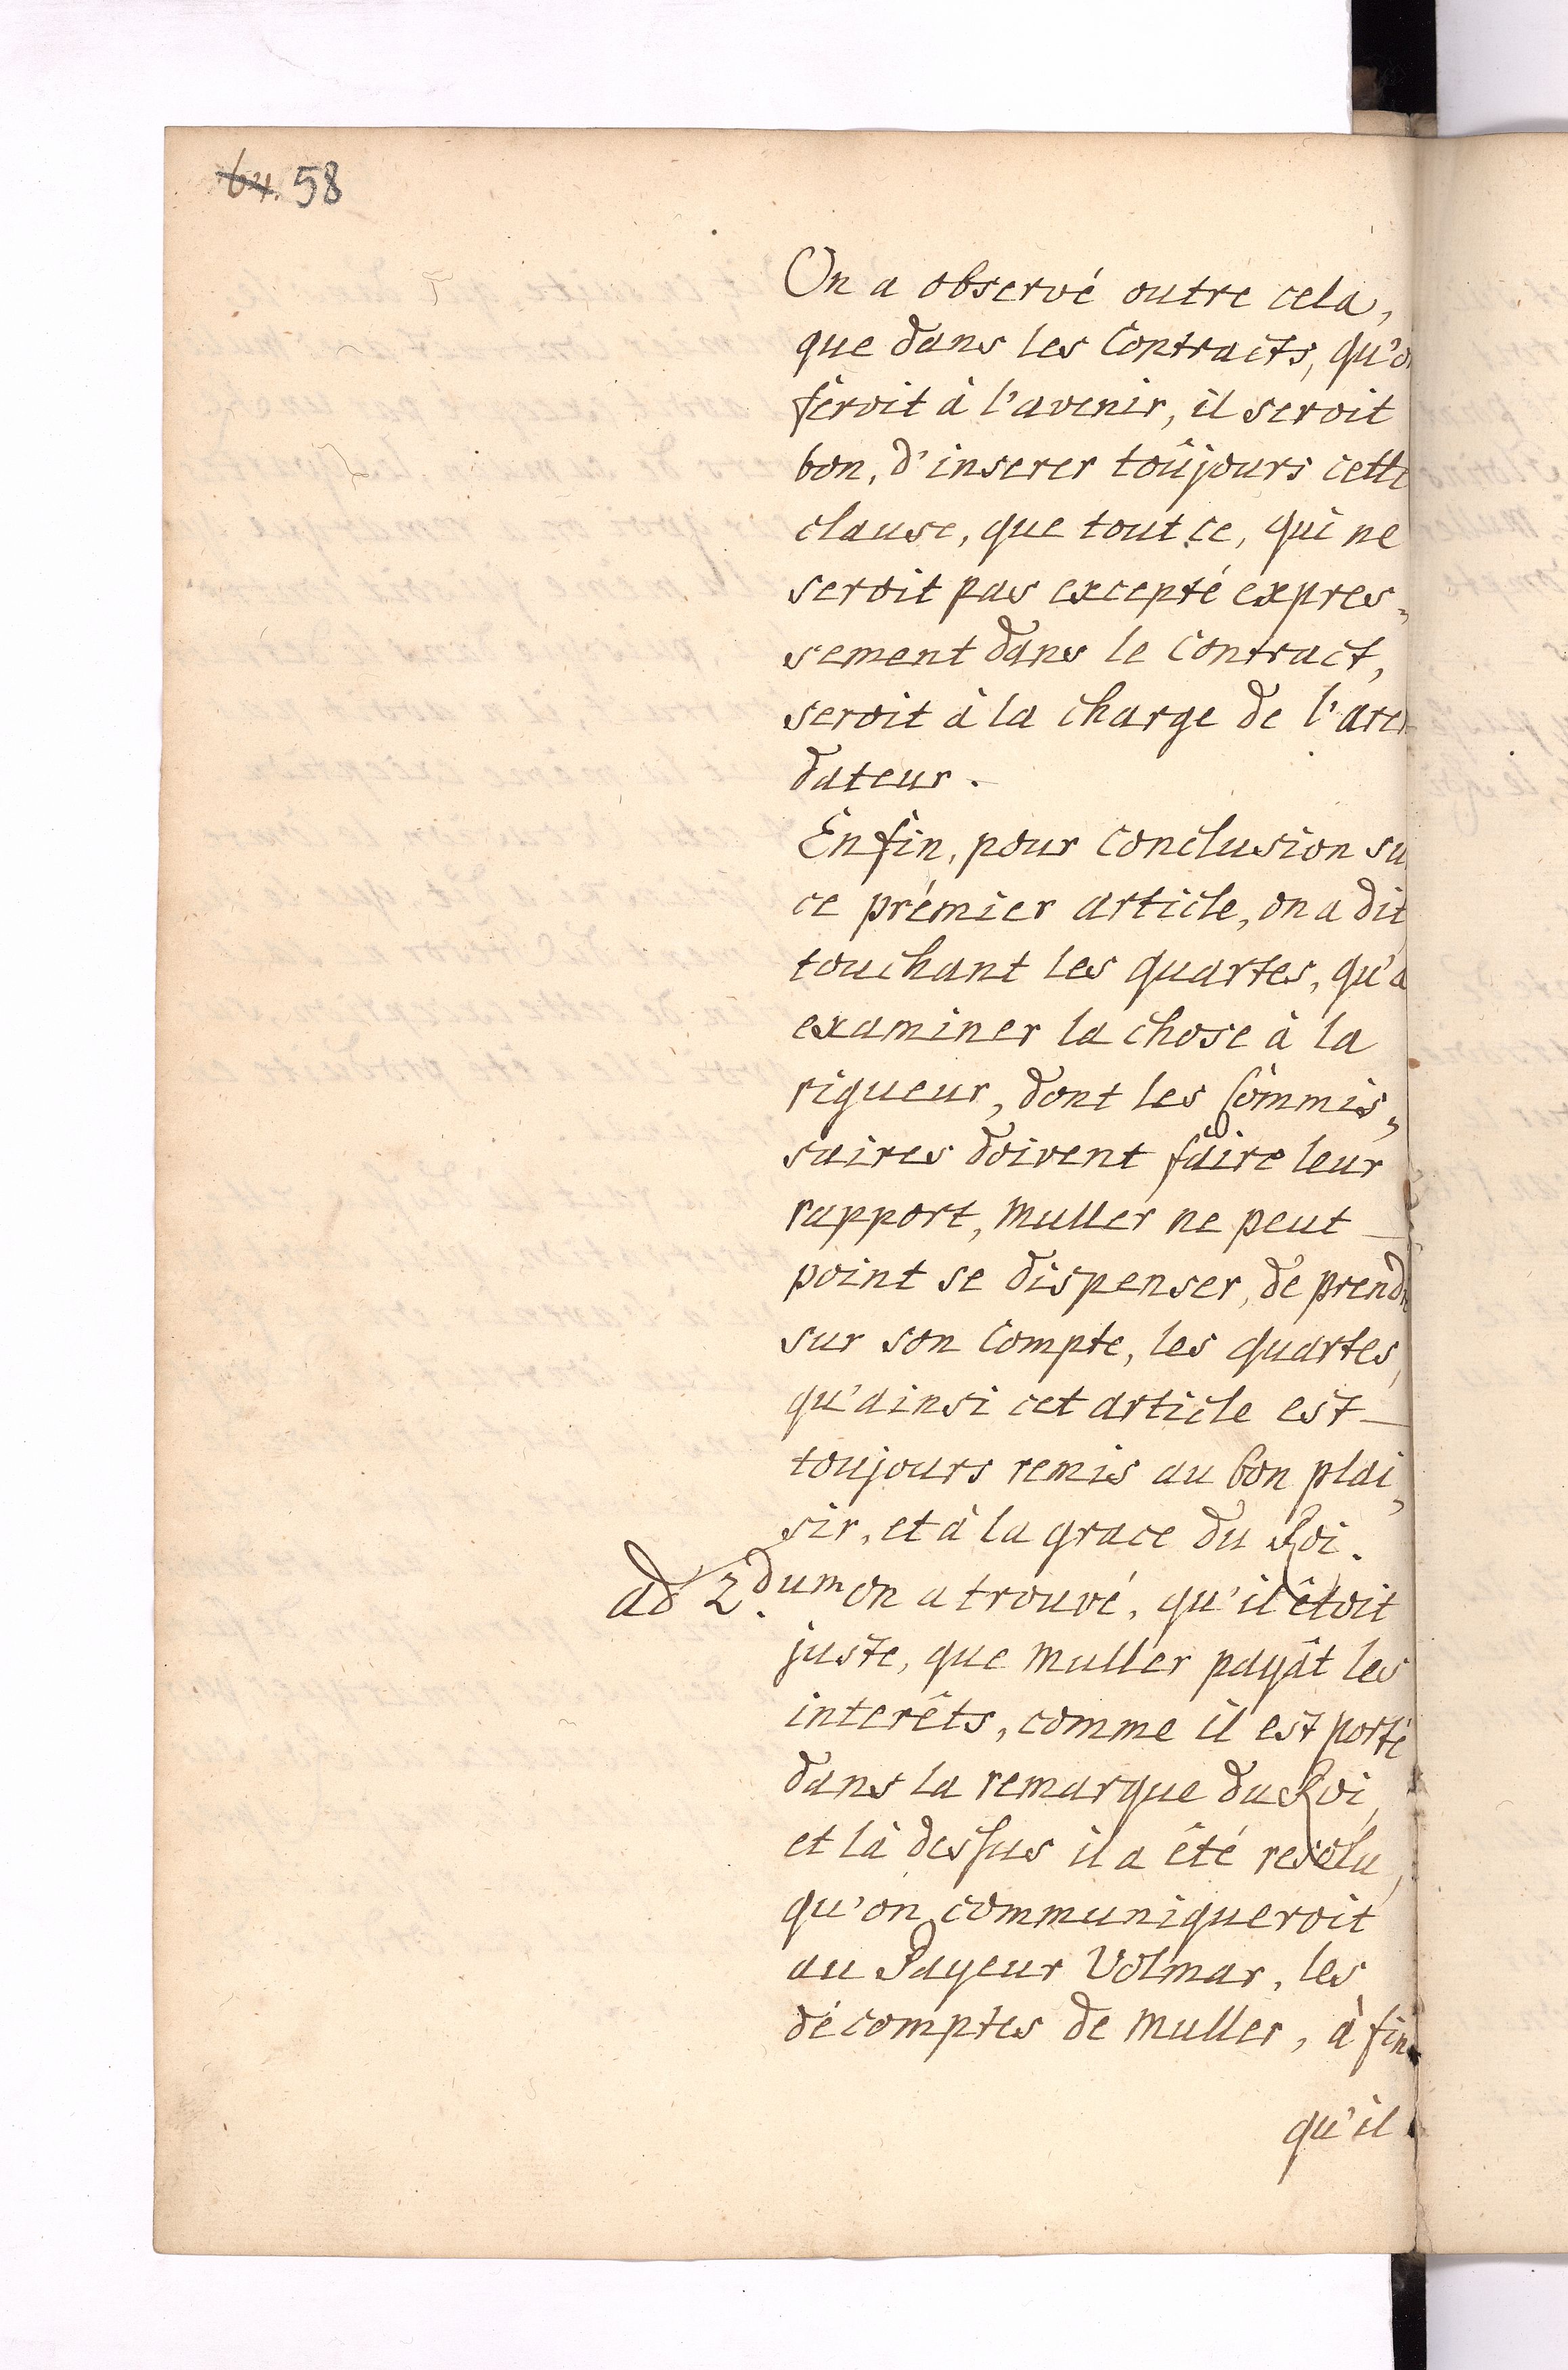 64. 58
On a observé outre cela,
que dans les Contracts, qu'o
feroit à l'avenir, il seroit
bon, d'inserer toûjours cette
clause, que tout ce, qui ne
seroit pas excepté expres„
sement dans le Contract,
seroit à la charge de l'aren
dateur.
Enfin, pour Conclusion su
ce prémier article, on a dit
touchant les quartes, qu'a
examiner la chose à la
rigueur, dont les Commis„
saires doivent faire leur
rapport, Muller ne peut
point se dispenser, de prendr
sur son Compte, les quartes,
qu'ainsi cet article est
toujours remis au bon plai„
sir, et à la grace du Roi.
ad 2.dum on a trouvé, qu'il êtoit
juste, que Muller payât les
interêts, comme il est porté
dans la remarque du Roi,
et là dessus il a êté resolu,
qu'on communiqueroit
au Payeur Volmar, les
décomptes de Muller, à fin
qu'il